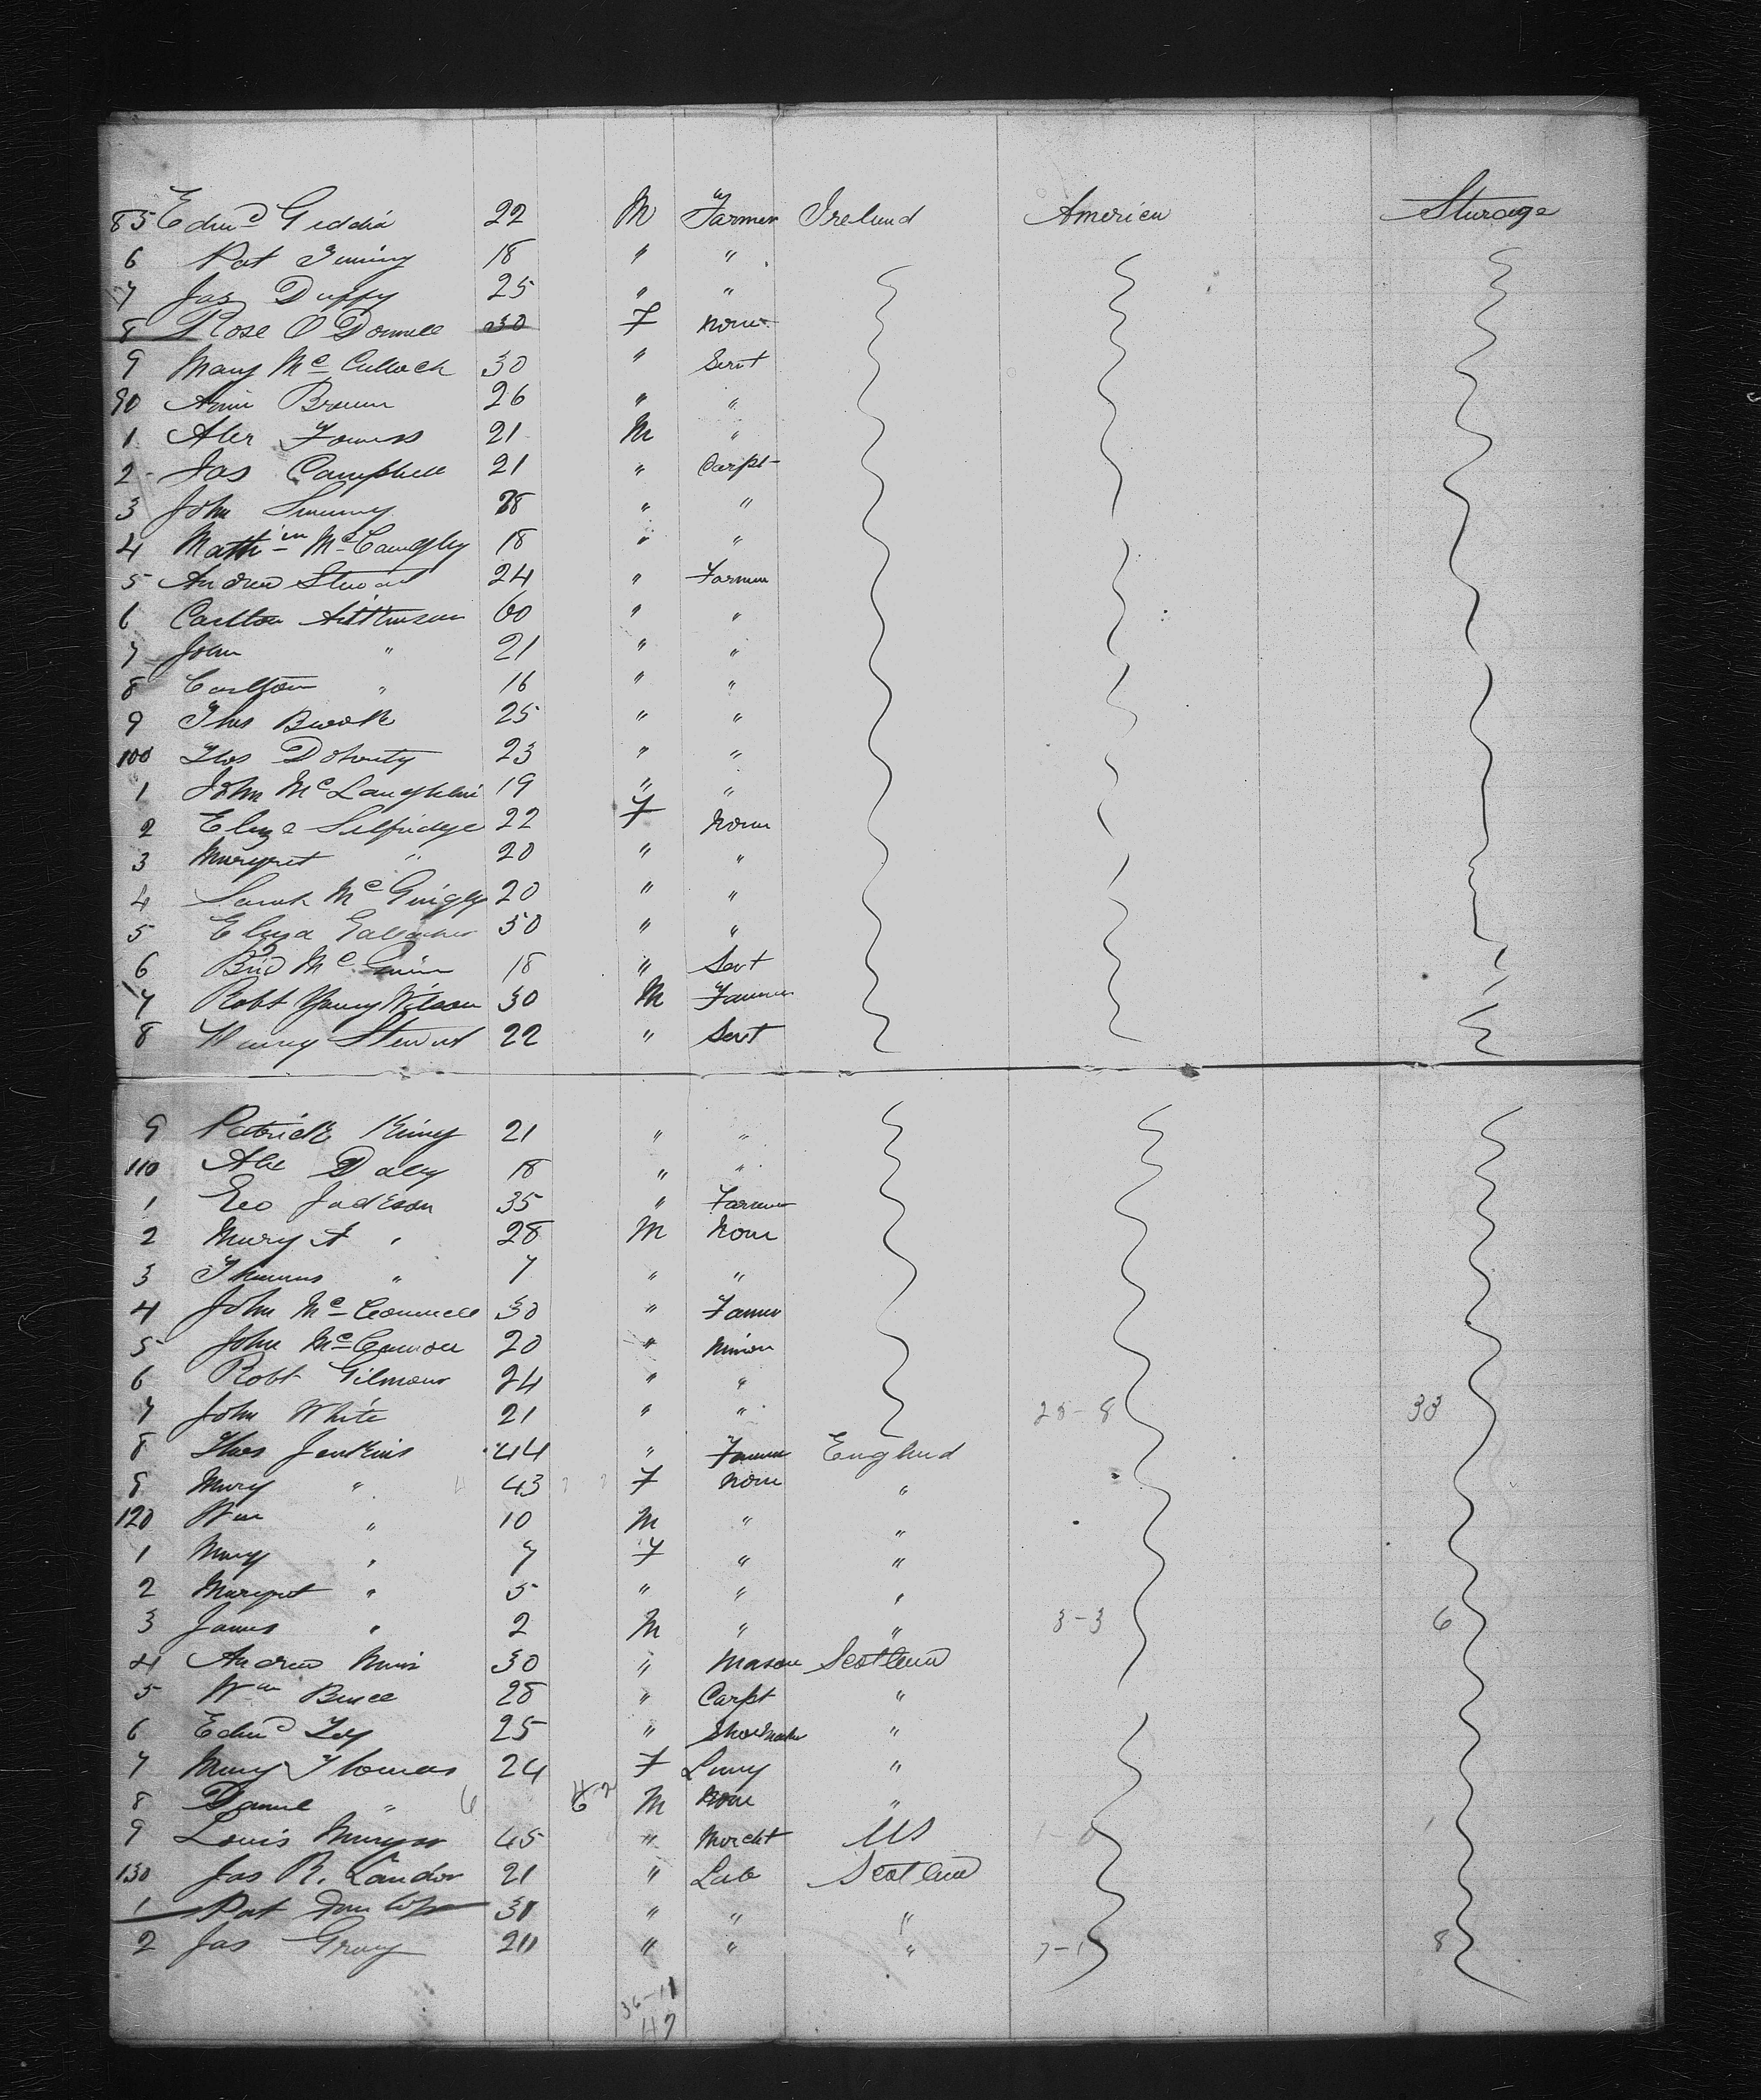 85 Edmd Geddis 22 M Farmer Ireland America Steerage
6 Pat 18 " "
7 Jas Duffy 25 " "
8 Rose O Donnell 30 F None
9 Mary Mc Culloch 30 " Servt
90 Annie Brown 26 " "
1 Alex 21 M "
2 Jas Campbell 21 " Carpt
3 John 28 " "
4 18 " "
5 Andrew Stewart 24 " Farmer
6 Carlton 60 " "
7 John " 21 " "
8 Carlton " 16 " "
9 Thos 25 " "
100 Thos Doherty 23 " "
1 John McLaughlin 19 " "
2 Eliza Selfridge 22 F None
3 Margret " 20 " "
4 Sarah Mc 20 " "
5 Eliza Gallagher 30 " "
6 Brid Mc 18 " Servt
7 Robt Young Wilson 30 M Farmer
8 Stewart 22 " Servt
9 Patrick 21 " "
110 Daly 18 " "
1 Geo Jackson 35 " Farmer
2 Mary A " 28 M None
3 Thomas " 7 " "
4 John Mc Connell 30 " Farmer
5 John Mc 20 " Miner
6 Robt Gilmour 24 " "
7 John White 21 " " 25-8 33
8 Thos Jenkins 44 " Farmer England
9 Mary " 43 F None "
120 Wm " 10 M " "
1 Mary " 7 F " "
2 Margret " 5 " " "
3 James " 2 M " " 3-3 6
4 Andrew Muir 30 " Mason Scotland
5 Wm Bruce 28 " Carpt "
6 Edmd 25 " Shoemaker "
7 Mary Thomas 24 F "
8 Daniel " 6 M None "
9 Louis 45 " Mercht US
130 Jas R. 21 " Lab Scotland
1 Pat Dunlop 31 " " "
2 Jas Gray 20 " " " 7-1 8
36-11
47